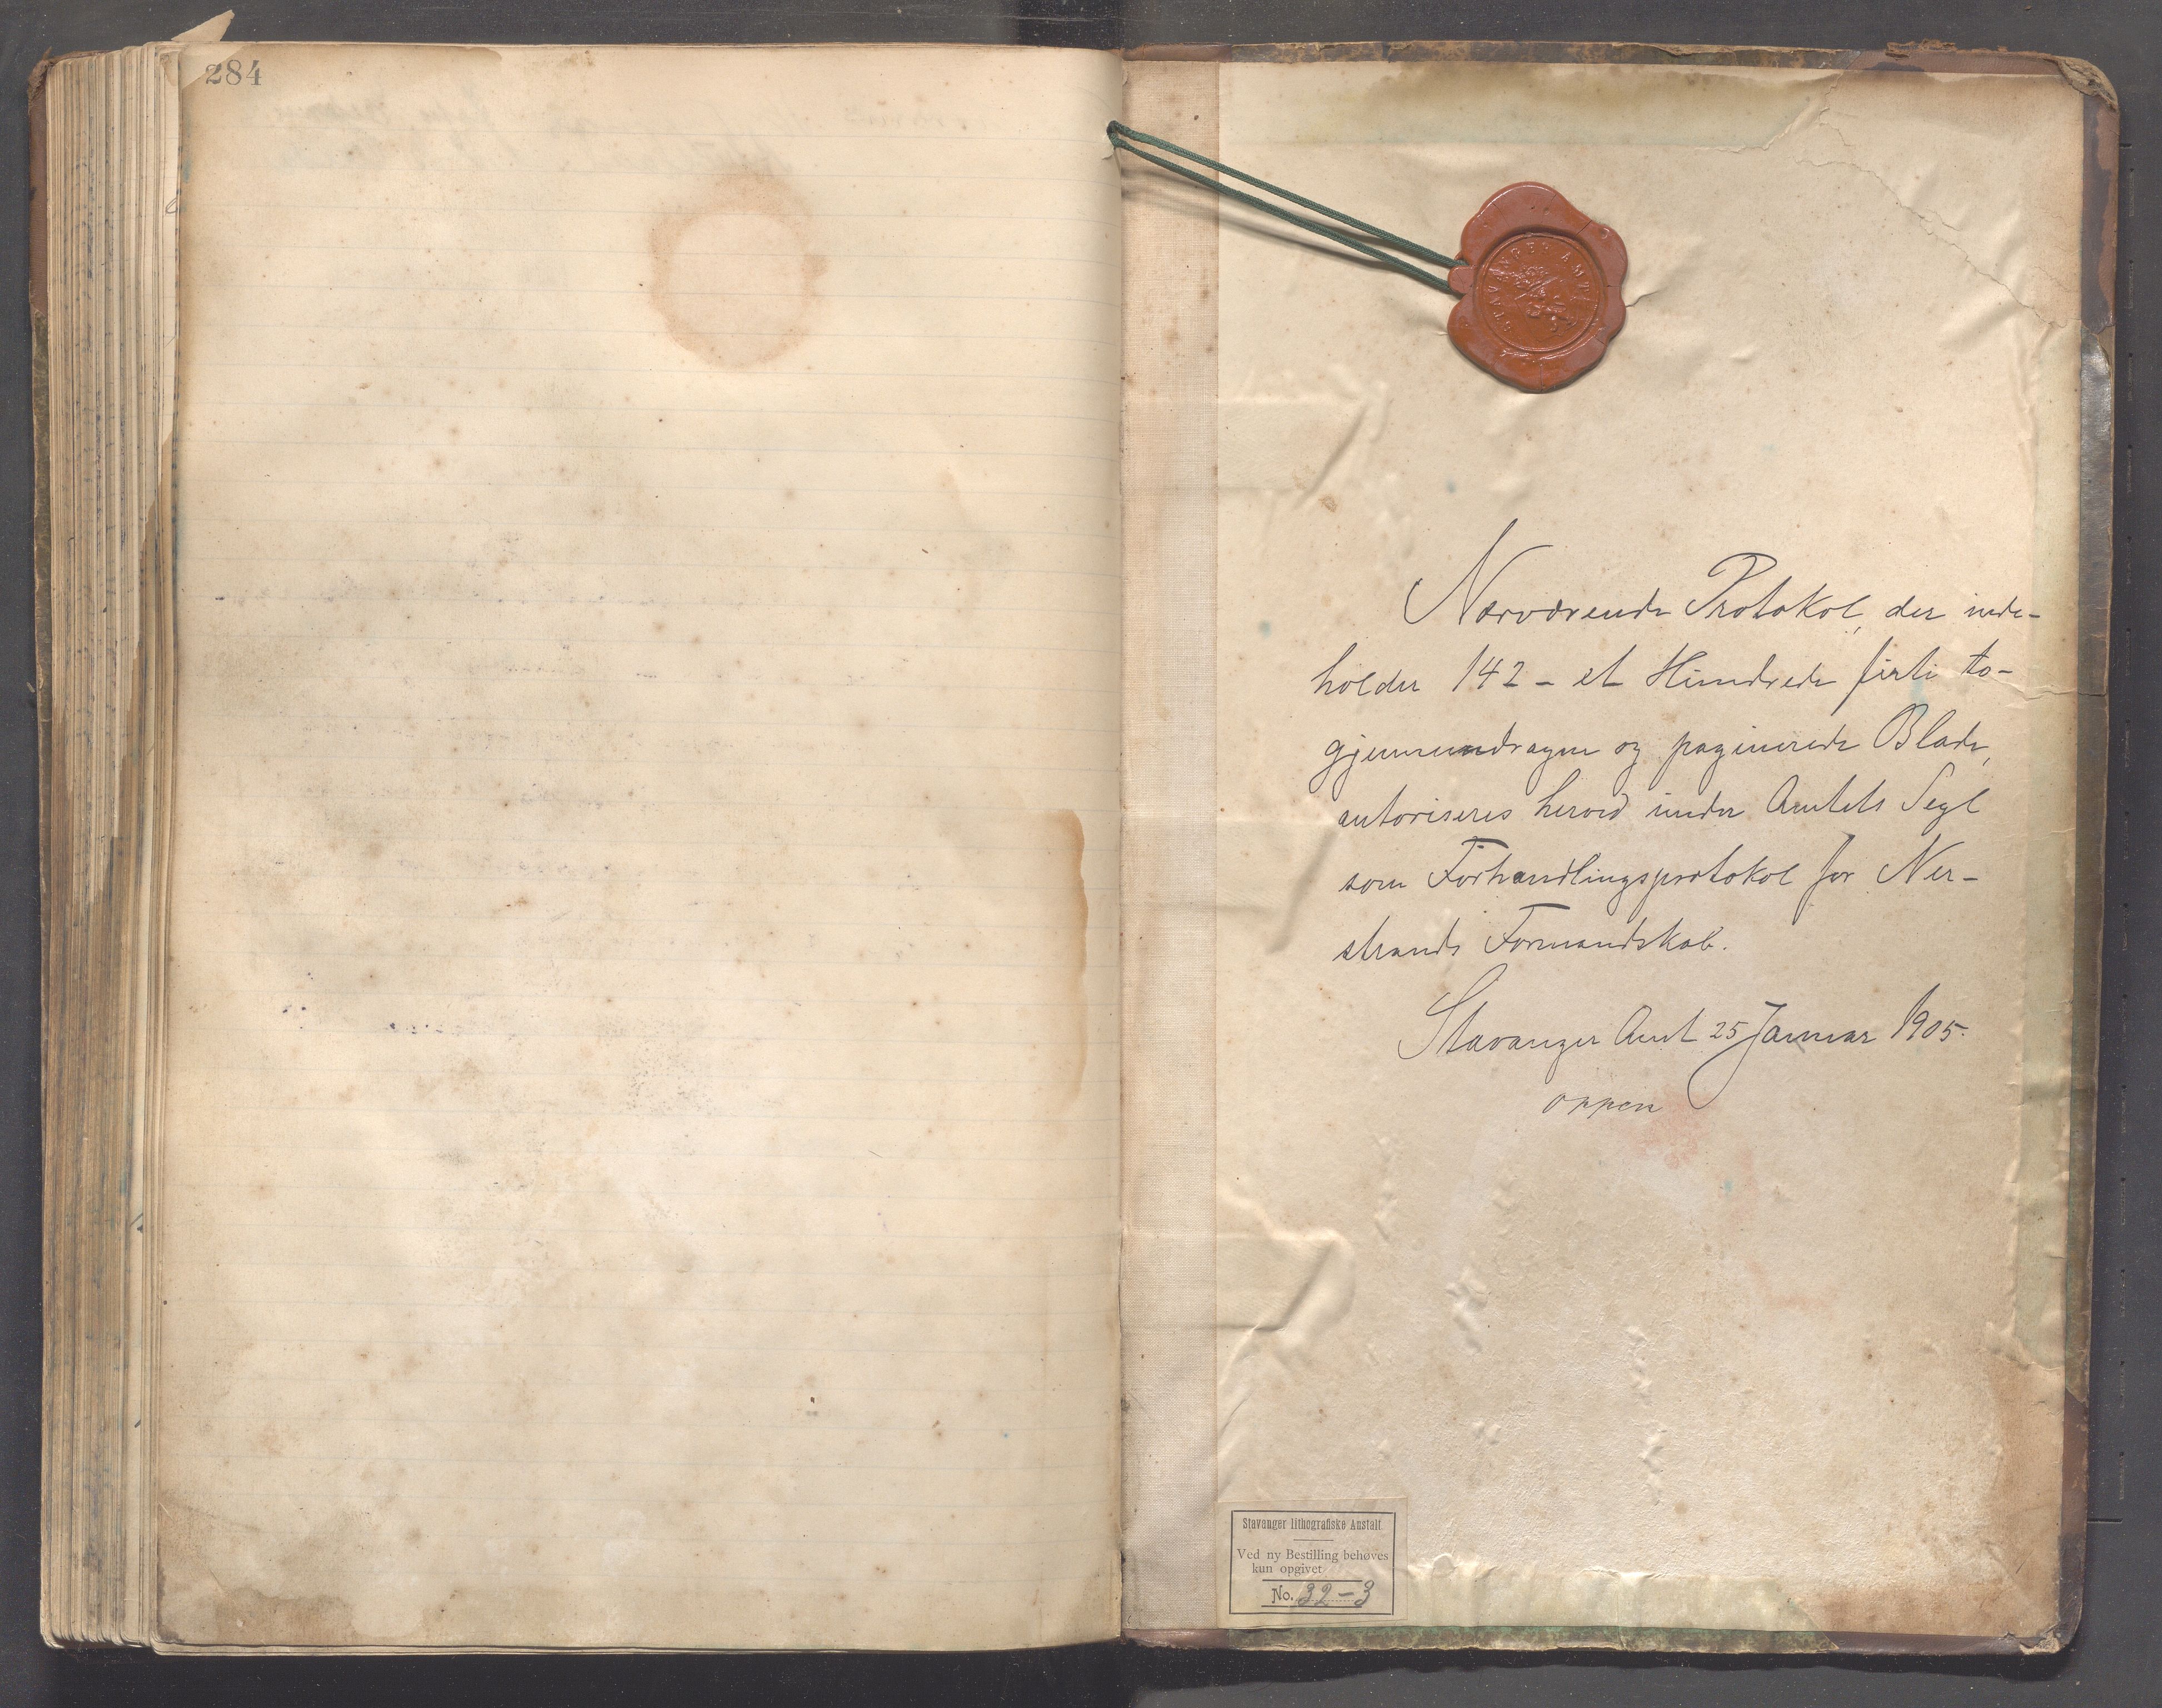 284
Nærværende Protokol, der inde-
holder 142 - et Hundrede firti to -
gjennemdragne og paginerede Blade,
autoriseres herved under Amtets Segl
som Forhandlingsprotokol for Ner-
strands Formandskab.
Stavanger Amt 25 Januar 1905.
Oppen
STAVANGER AMT
Stavanger lithografiske Anstalt
Ved ny Bestilling behøves
kun opgivet
No. 32-3